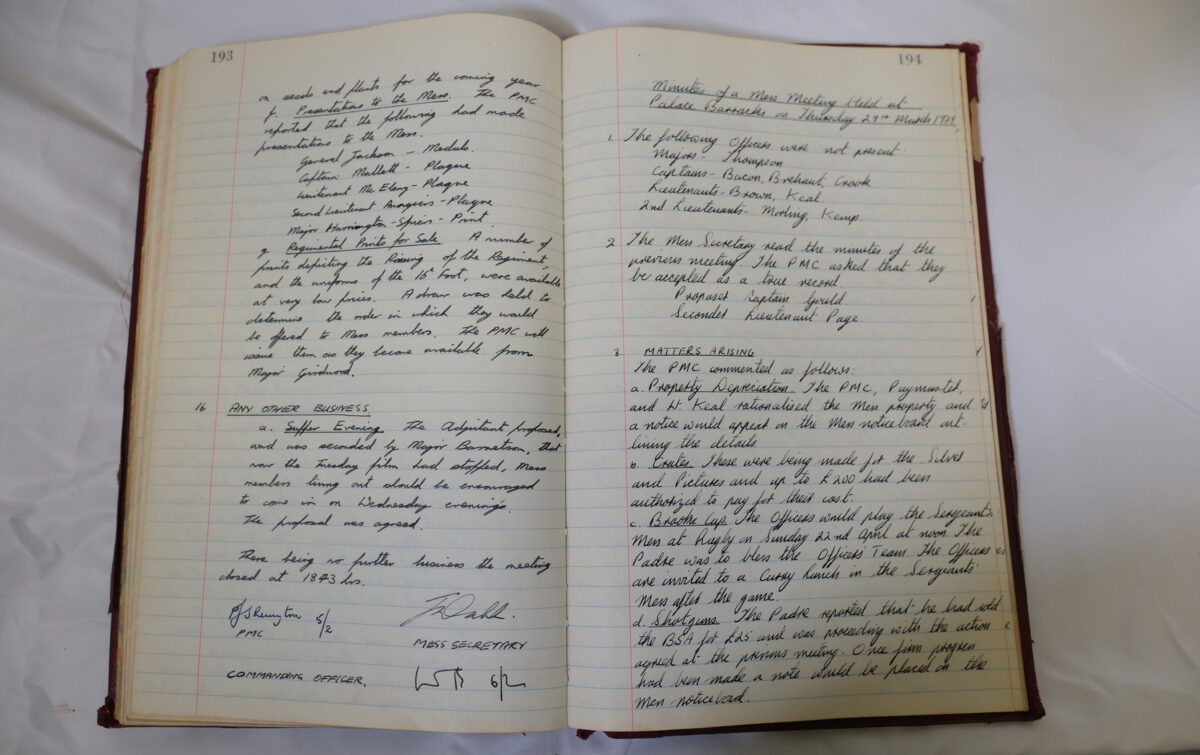 193
on seeds and plants for the coming year
f. Presentations to the Mess. The PMC
reported that the following had made
presentations to the Mess.
General Jackson - Medals.
Captain Mallett - Plaque
Lieutenant Mc Eleny - Plaque
Second Lieutenant - Plaque
Major Harrington-Spier - Print
g. Regimental Prints for Sale. A number of
prints depicting the Raising of the Regiment,
and the uniforms of the 15th Foot, were available
at very low prices. A draw was held to
determine the order in which they would
be offered to Mess members. The PMC will
issue them as they become available from
Major Girdwood.
16 ANY OTHER BUSINESS
a. Supper Evening. The Adjutant proposed,
and was seconded by Major Barnetson, that
now the Tuesday film had stopped, Mess
members living out should be encouraged
to come in on Wednesday evenings.
The proposal was agreed.
There being no further business the meeting
closed at 1843 hrs.
5/2
PMC
MESS SECRETARY
COMMANDING OFFICER. 6/2
194
Minutes of a Mess Meeting Held at
Palace Barracks on Thursday 29th March 1979.
1. The following Officers were not present:
Majors - Thompson
Captains - Bacon, Brehaut, Crook
Lieutenants - Brown, Keal.
2nd Lieutenants - Morling, Kemp.
2 The Mess Secretary read the minutes of the
previous meeting. The PMC asked that they
be accepted as a true record.
Proposer Captain Gould
Seconder Lieutenant Page.
3. MATTERS ARISING
The PMC commented as follows:
a. Property Depreciation. The PMC, Paymaster,
and Lt. Keal rationalised the Mess property and
a notice would appear on the Mess noticeboard out-
lining the details.
b. Crates. These were being made for the Silver
and Pictures and up to £200 had been
authorized to pay for their cost.
c. Brooke Cup. The Officers would play the Sergeants'
Mess at Rugby on Sunday 22nd April at noon. The
Padre was to bless the Officers' Team. The Officers
are invited to a Curry lunch in the Sergeants'
Mess after the game.
d. Shotguns. The Padre reported that he had sold
the BSA for £25 and was proceeding with the action
agreed at the previous meeting. Once firm progress
had been made a note would be placed on the
Mess noticeboard.